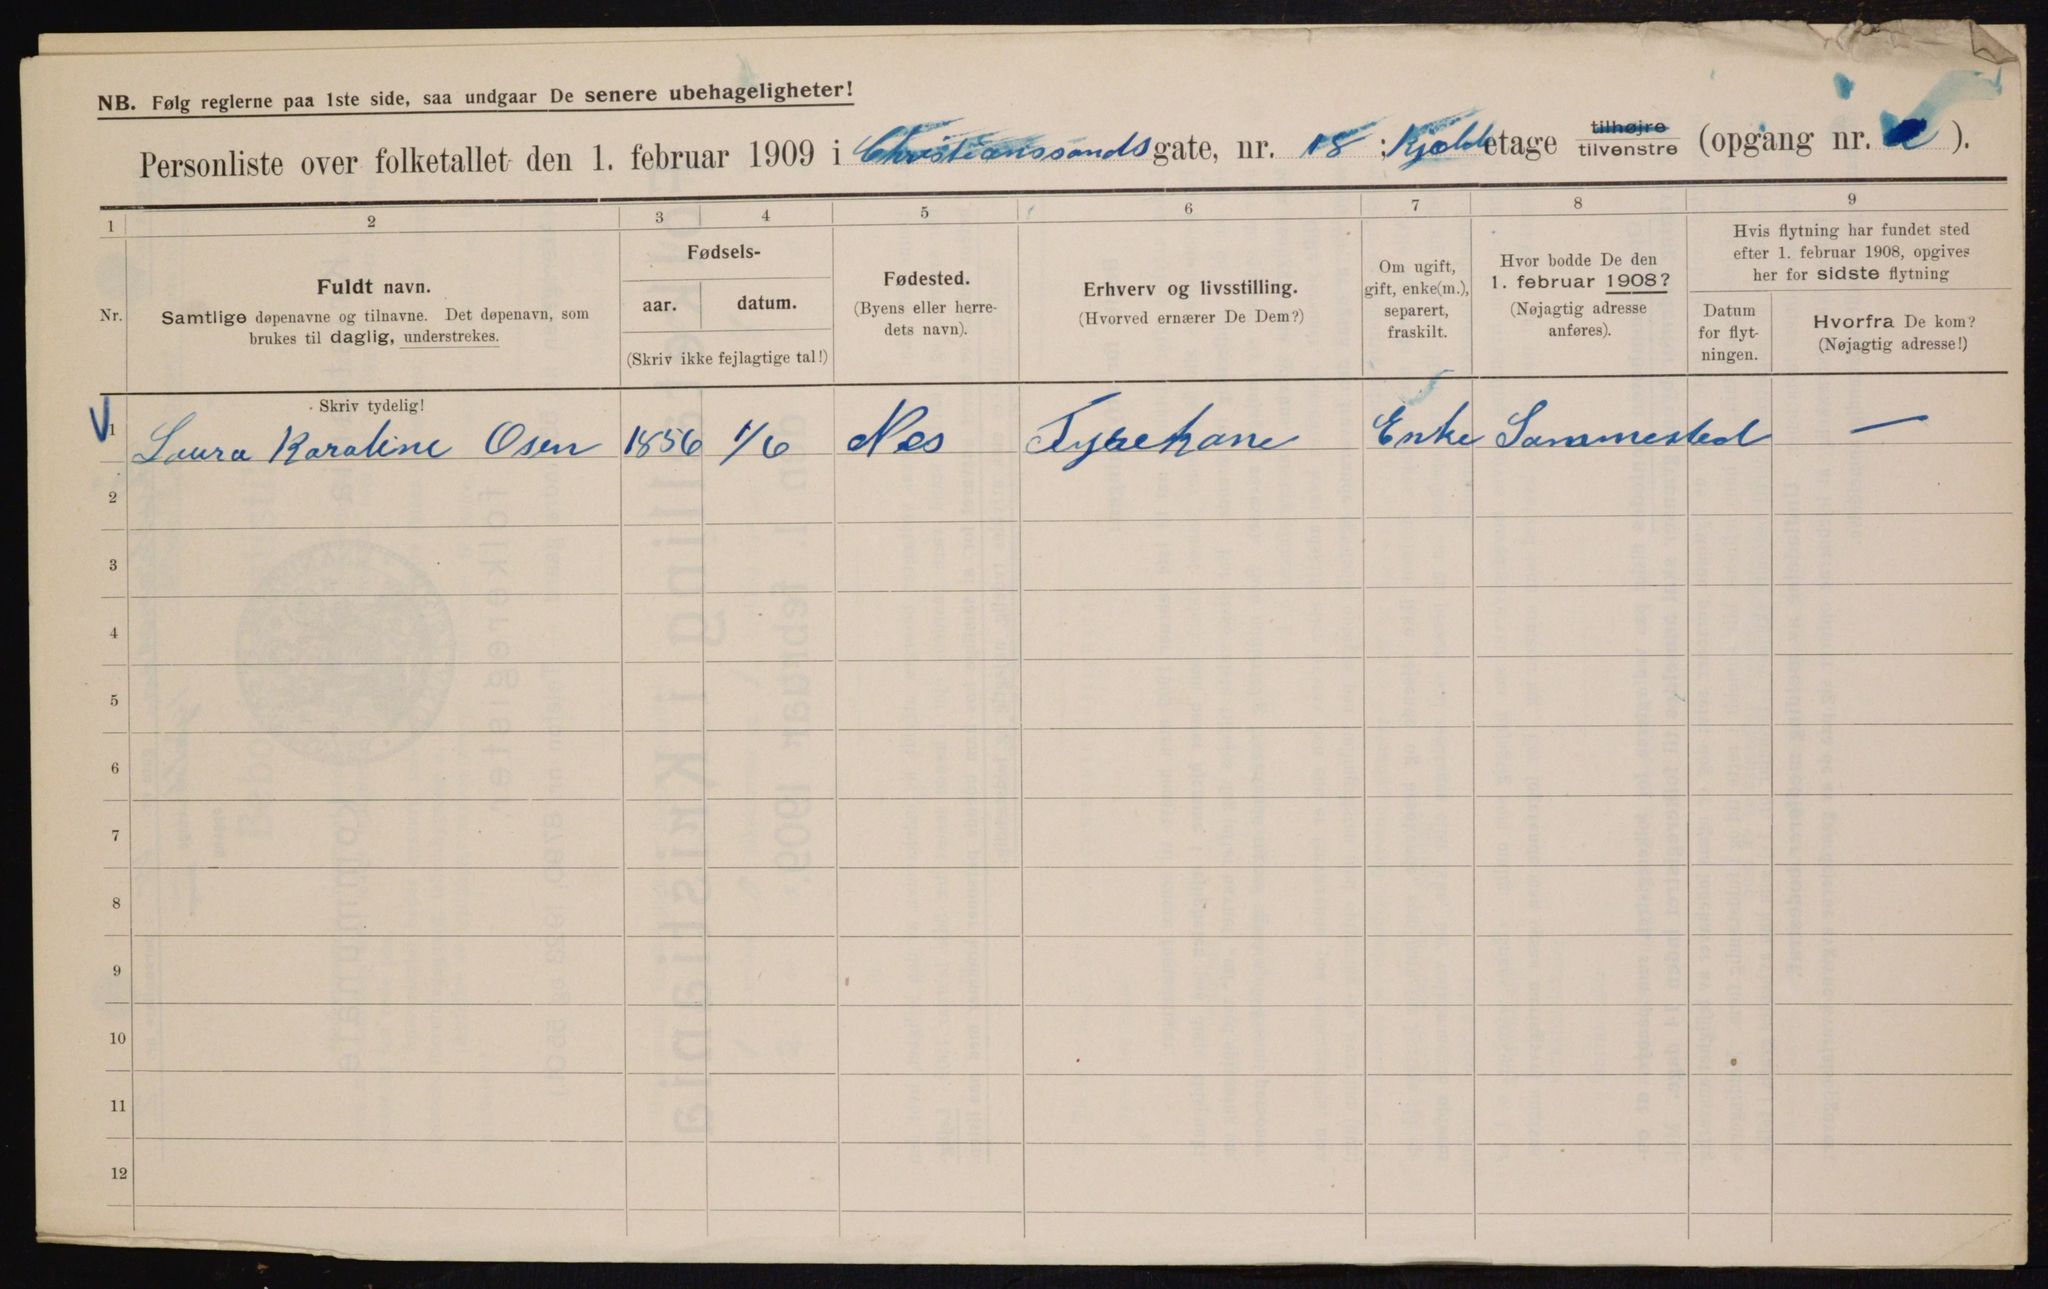 NB. Følg reglerne paa 1ste side, saa undgaar De senere ubehageligheter!
Personliste over folketallet den 1. februar 1909 i Christianssands gate, nr. 18 ; Kjeld etage tilhøjre tilvenstre (opgang nr. ).
1 2 3 4 5 6 7 8 9
Nr.
Fuldt navn.
Samtlige døpenavne og tilnavne. Det døpenavn, som
brukes til daglig, understrekes.
Fødsels-
aar. datum.
(Skriv ikke fejlagtige tal!)
Fødested.
(Byens eller herre-
dets navn).
Erhverv og livsstilling.
(Hvorved ernærer De Dem?)
Om ugift,
gift, enke(m.),
separert,
fraskilt.
Hvor bodde De den
1. februar 1908?
(Nøjagtig adresse
anføres).
Hvis flytning har fundet sted
efter 1. februar 1908, opgives
her for sidste flytning
Datum
for flyt-
ningen.
Hvorfra De kom?
(Nøjagtig adresse!)
Skriv tydelig!
1 Laura Karoline Osen 1856 1/6 Nes Enke Sammested —
2
3
4
5
6
7
8
9
10
11
12